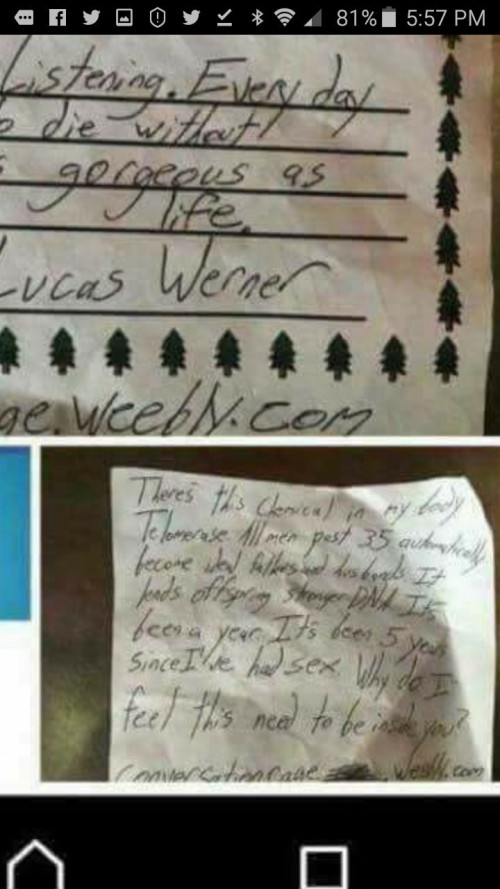 81% 5:57 PM
Listening. Every day
o die without
s gorgeous as
life.
Lucas Werner
ge.weebly.com
There's this Chemical in my body
Telomerase All men past 35 automatically
become ideal fathers and husbands It
lends offspring stronger DNA It's
been a year. It's been 5 years
since I've had sex. Why do I
feel this need to be inside you?
conversationpage .weebly.com